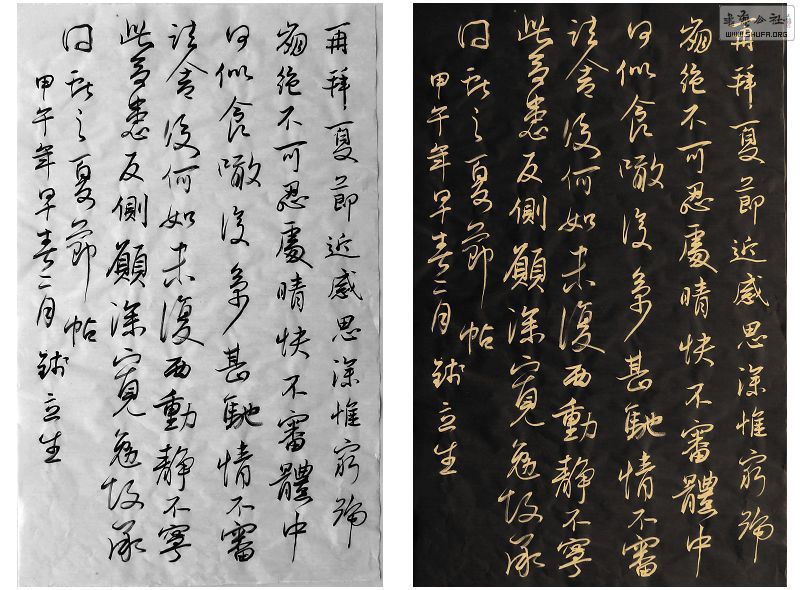 再拜夏節近感思深惟窮號
崩絕不可忍處晴快不審體中
何似食噉復甚馳情不審
諸舍復何如未復西動靜不寧
此反側願深寬勉故承
問獻之夏節帖
甲午年早春二月立生
書藝公社
WWW.SHUFA.ORG
再拜夏節近感思深惟窮號
崩絕不可忍處晴快不審體中
何似食噉復甚馳情不審
諸舍復何如未復西動靜不寧
此反側願深寬勉故承
問獻之夏節帖
甲午年早春二月立生